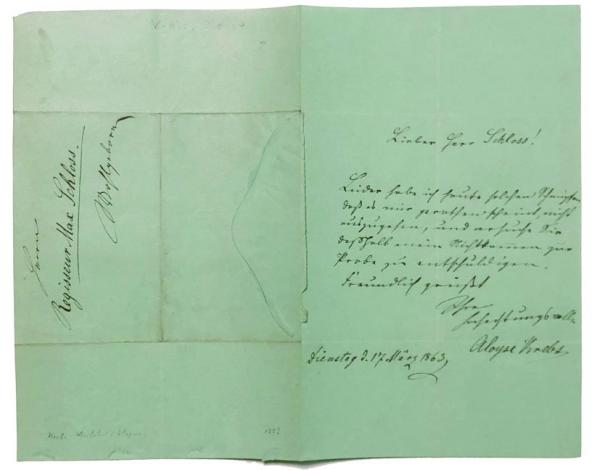 Herrn
Regisseur Max Schloss.
Wohlgeborn
Lieber Herr Schloss!
Leider habe ich heute solchen Schnupfen,
daß es mir rathsam scheint, nicht
auszugehen, und ersuche Sie
deßhalb mein Nichtkommen zur
Probe zu entschuldigen.
Freundlich grüßt
Ihre
hochachtungsvolle
Aloyse Krebs
Dienstag d. 17 März 1863